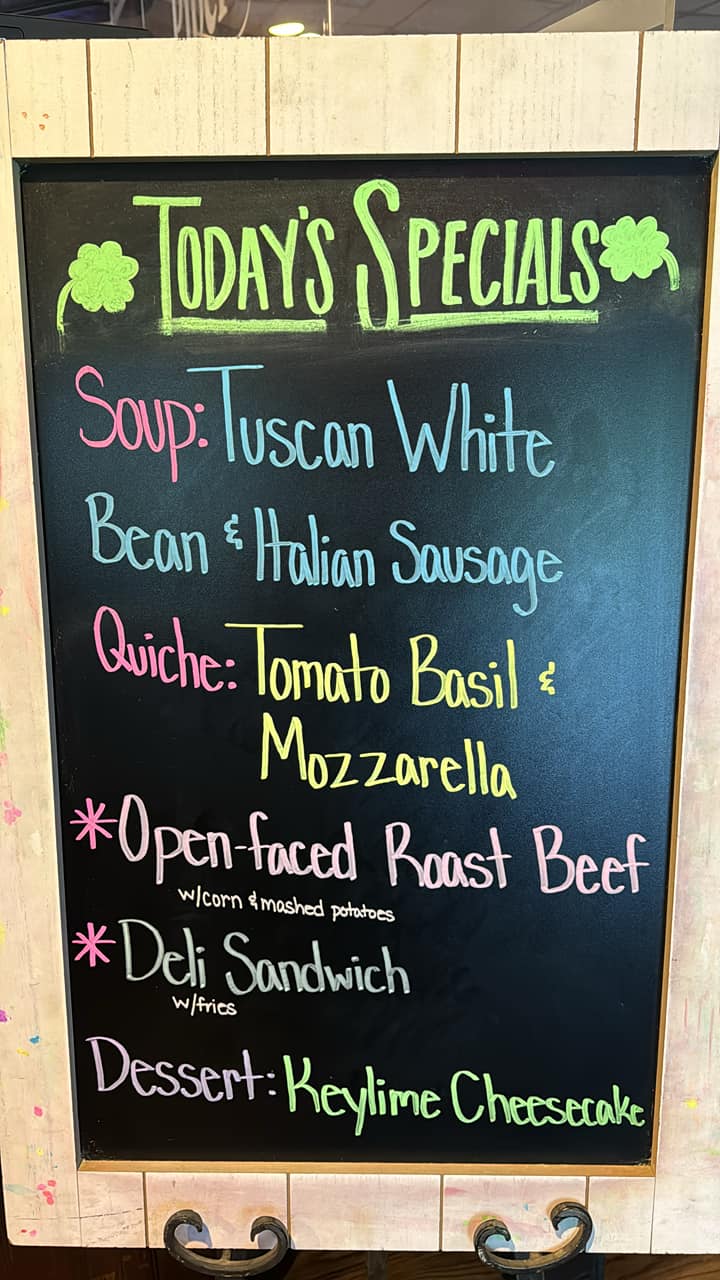 TODAY'S SPECIALS
Soup: Tuscan White
Bean & Italian Sausage
Quiche: Tomato Basil &
Mozzarella
*Open-faced Roast Beef
w/corn & mashed potatoes
*Deli Sandwich
w/fries
Dessert: Keylime Cheesecake